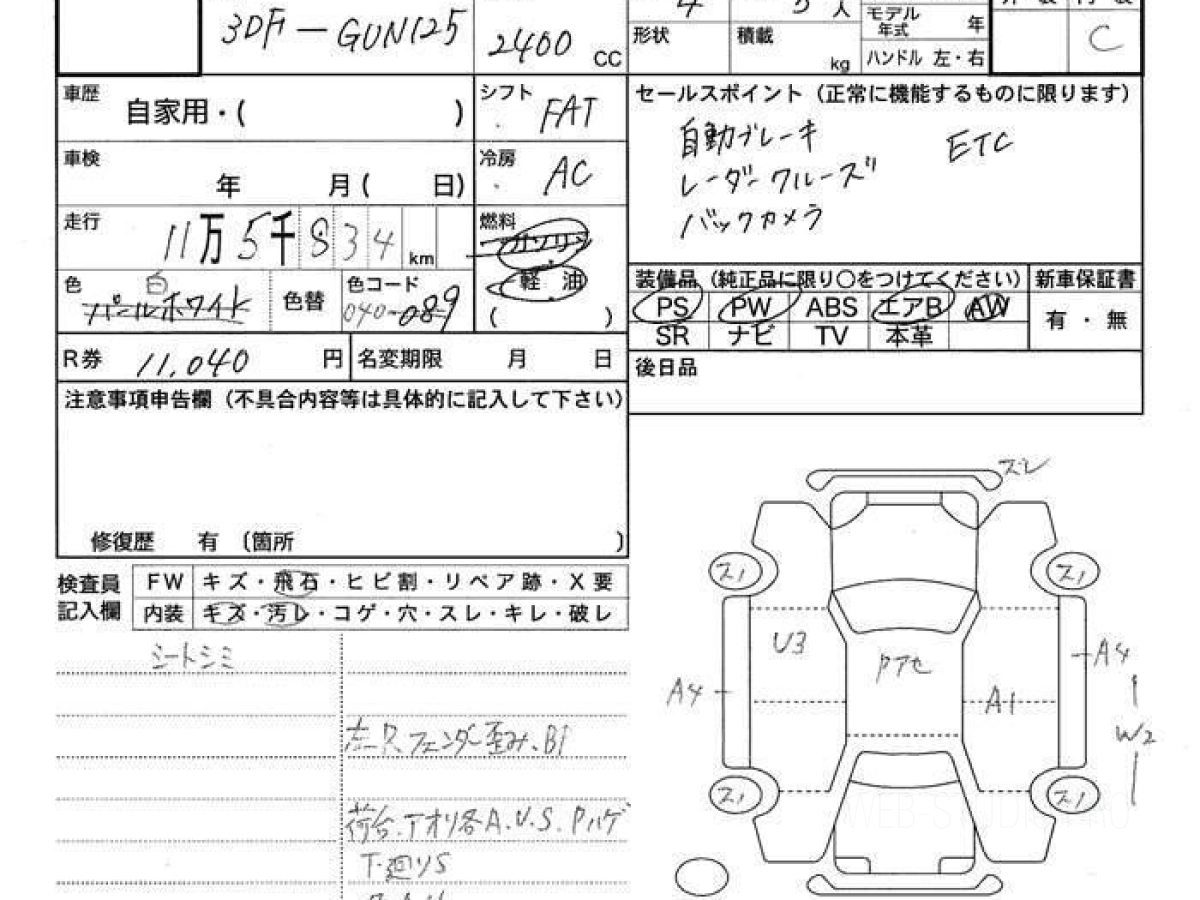 3DF-GUN125
2400 CC
4
5 人
モデル年式 年
形状
積載 kg
ハンドル 左・右
C
車歴 自家用・( )
シフト FAT
車検 年 月( 日)
冷房 AC
走行 11万5千834km
燃料 ガソリン
軽油
( )
色 白
パールホワイト
色替
色コード 040-089
R券 11,040 円
名変期限 月 日
セールスポイント（正常に機能するものに限ります）
自動ブレーキ ETC
レーダークルーズ
バックカメラ
装備品（純正品に限り〇をつけてください）
新車保証書
PS PW ABS エアB AW
有・無
SR ナビ TV 本革
後日品
注意事項申告欄（不具合内容等は具体的に記入して下さい）
修復歴 有 〔箇所 〕
検査員記入欄
FW キズ・飛石・ヒビ割・リペア跡・X要
内装 キズ・汚レ・コゲ・穴・スレ・キレ・破レ
シートシミ
左R フェンダー歪み、B1
荷台、アオリ各A.U.S.Pハゲ
下廻りS
ズレ
ス1
ス1
U3
Pアセ
A4
A4
A1
W2
ス1
ス1